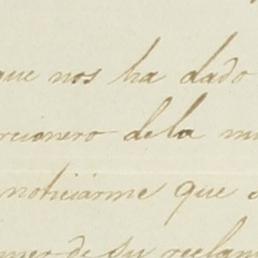 que nos ha dado
rcionero de la
noticiarme que
de su reclam